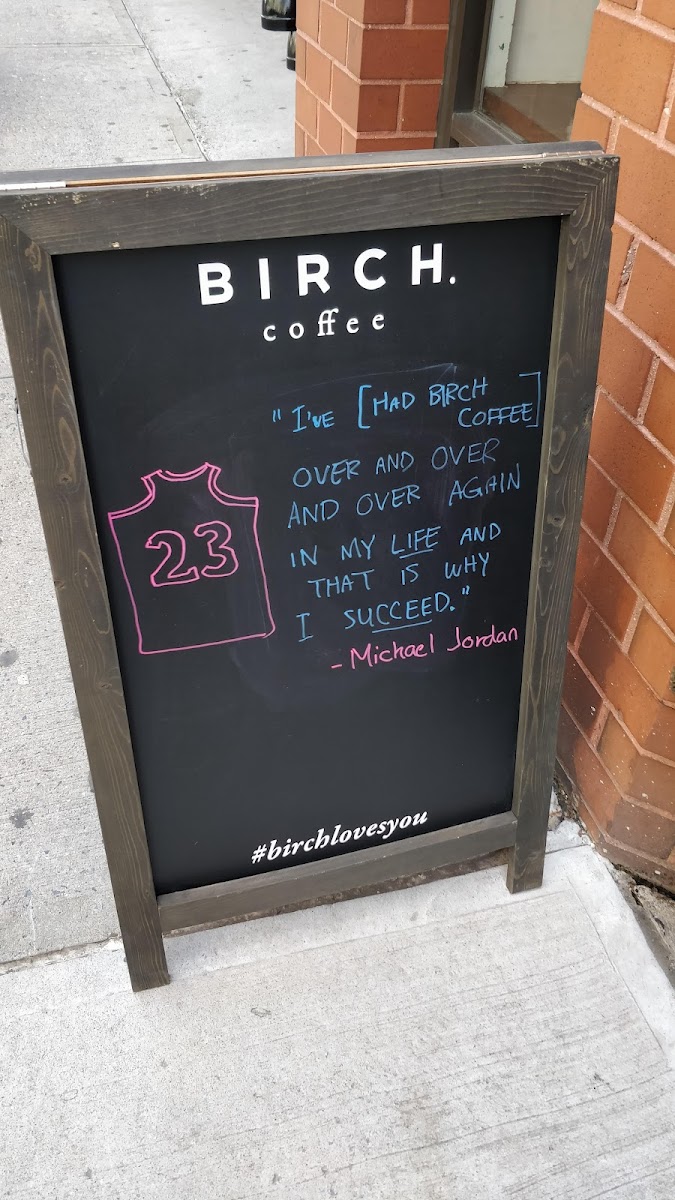 BIRCH.
coffee
"I'VE [HAD BIRCH
COFFEE]
OVER AND OVER
AND OVER AGAIN
IN MY LIFE AND
THAT IS WHY
I SUCCEED."
- Michael Jordan
23
#birchlovesyou